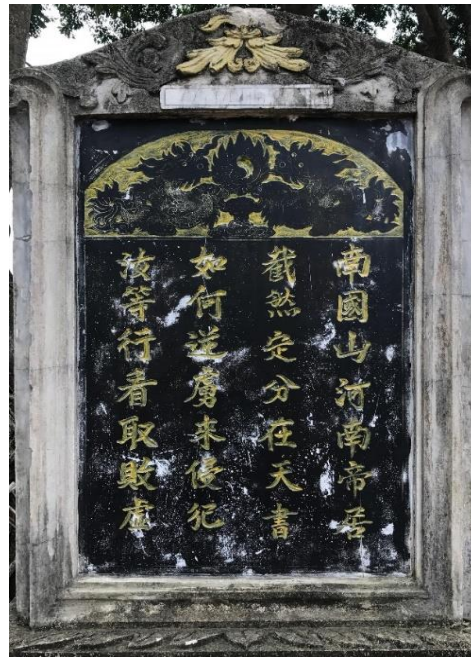 南國山河南帝居
截然定分在天書
如何逆虜来侵犯
汝等行看取敗虛